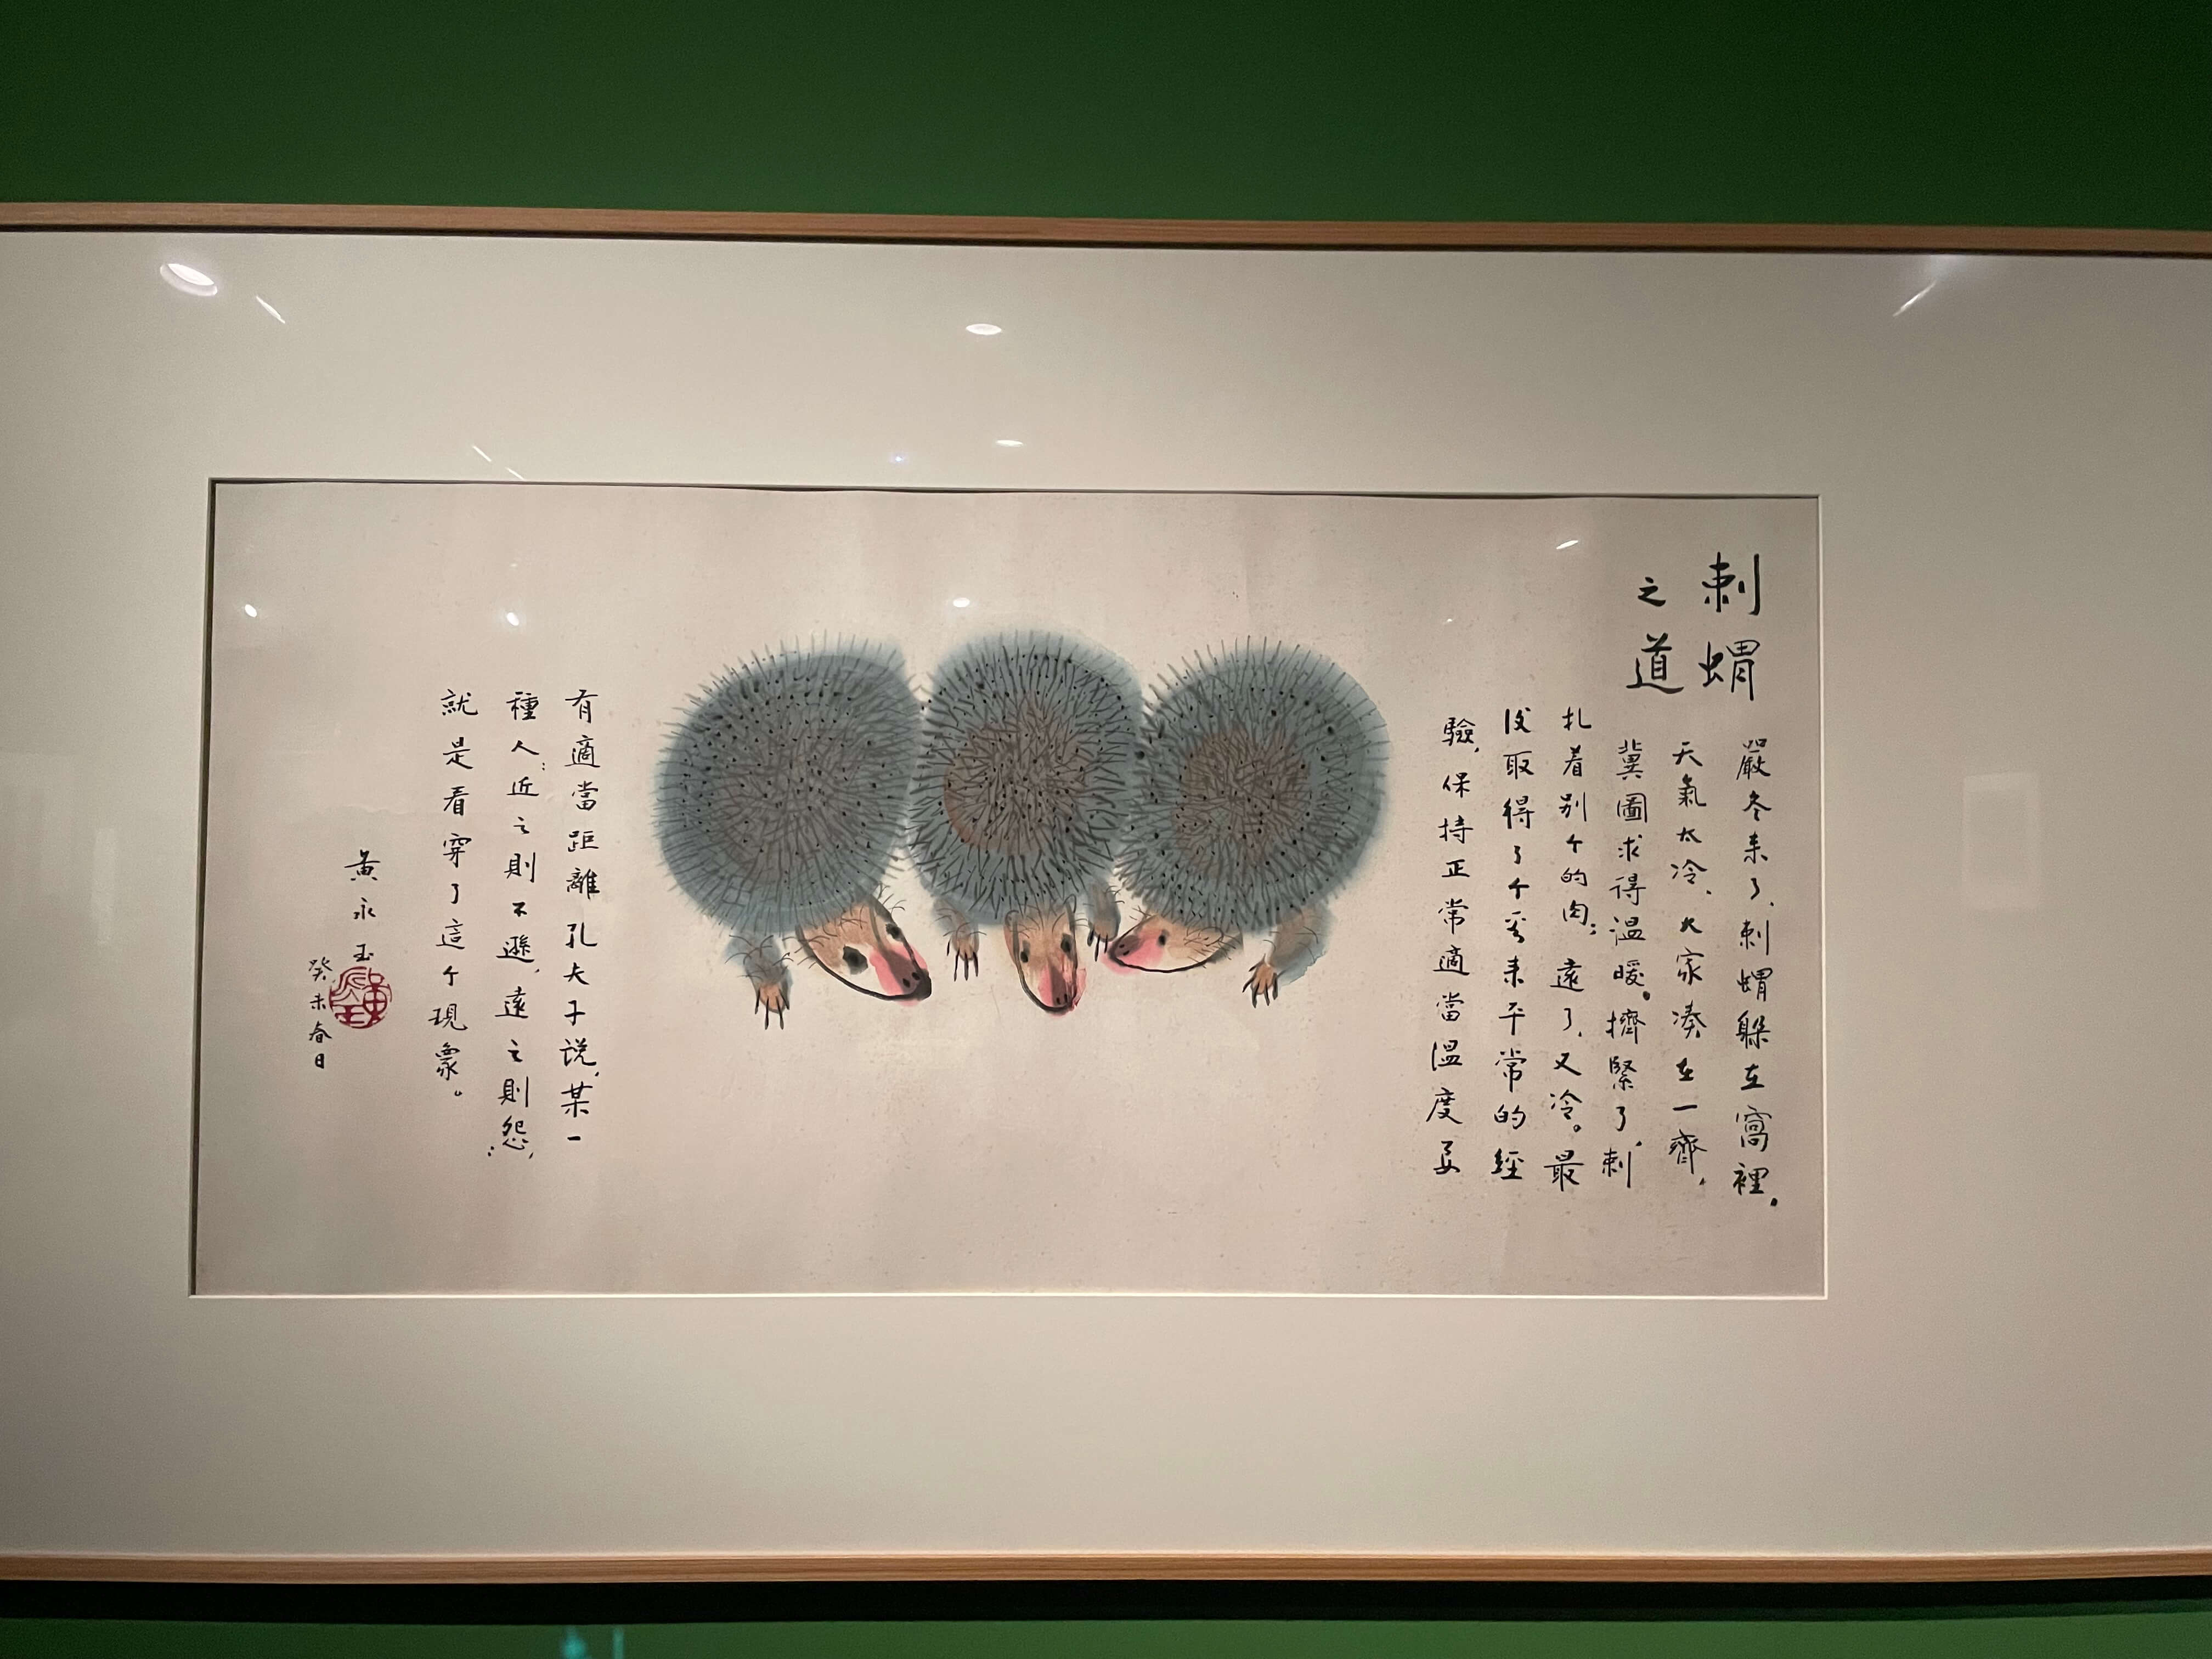 刺蝟
之道
嚴冬来了，刺蝟躲在窩裡。
天氣太冷，大家凑在一齊，
冀圖求得温暖。擠緊了，刺
扎着别个的肉；遠了，又冷。最
後取得了个看来平常的經
驗，保持正常適當温度要
有適當距離孔夫子说，某一
種人：近之則不遜，遠之則怨，：
就是看穿了這个現象。
黄永玉
癸未春日